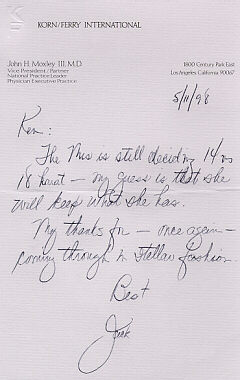 KORN/FERRY INTERNATIONAL
John H. Moxley III, M.D.
Vice President/Partner
National Practice Leader
Physician Executive Practice
1800 Century Park East
Los Angeles, California 90067
5/11/98
Ken:
The Mrs is still deciding 14 vs
18 karat — my guess is that she
will keep what she has.
My thanks for — once again —
coming through in stellar fashion.
Best
Jack